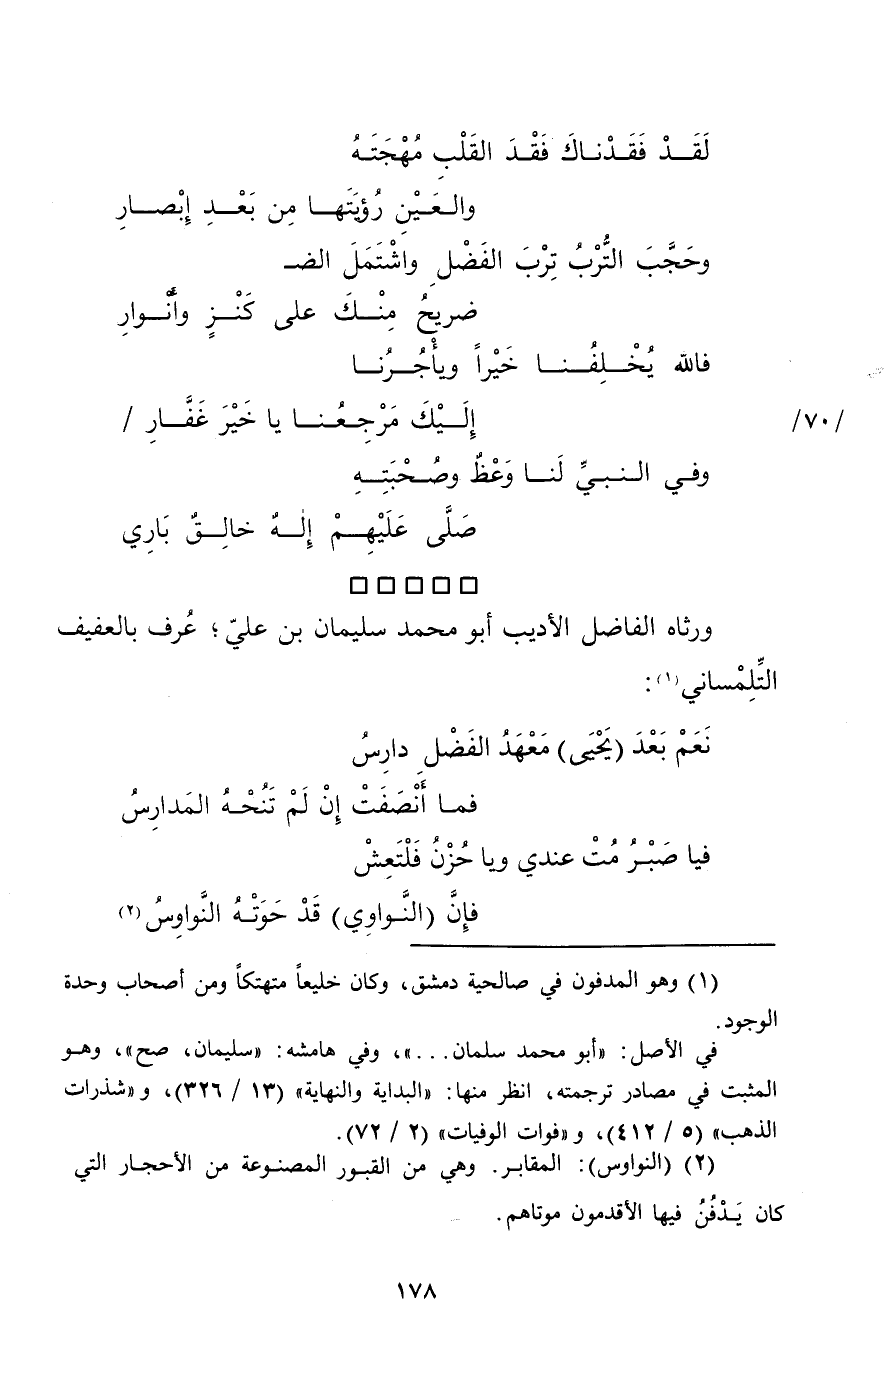 لَقَـــدْ فَقَـدْنـاكَ فَقْـدَ القَلْبِ مُهْجَتَـهُ
والـعَـيْنِ رُؤيَتَهـــا مِن بَعْـــدِ إِبْصـــارِ
وحَجَّبَ التُّرْبُ تِرْبَ الفَضْلِ واشْتَمَلَ الضـ
ضريحُ مِنْـــكَ على كَنْـــزٍ وأَنْـــوارِ
فالله يُخْـلِفُـنـا خَيْراً ويأْجُـرُنـا
إِلَـــيْكَ مَرْجِـعُـنـا يا خَيْرَ غَفَّـــارِ /
/٧٠/
وفـي الـنـبـيِّ لَنـا وَعْظٌ وصُـحْبَتِـهِ
صَلَّى عَلَيْهِـمْ إِلٰـهٌ خالِـقٌ بَارِي
□ □ □ □ □
ورثاه الفاضل الأديب أبو محمد سليمان بن عليّ؛ عُرف بالعفيف
التِّلِمْساني(١):
نَعَمْ بَعْدَ (يَحْيَى) مَعْهَدُ الفَضْلِ دارِسُ
فما أَنْصَفَتْ إِنْ لَمْ تَنُحْهُ المَدارِسُ
فيا صَبْـرُ مُتْ عندي ويا حُزْنُ فَلْتَعِشْ
فإِنَّ (النَّـواوي) قَدْ حَوَتْـهُ النَّواوِسُ(٢)
(١) وهو المدفون في صالحية دمشق، وكان خليعاً متهتكاً ومن أصحاب وحدة
الوجود.
في الأصل: «أبو محمد سلمان...»، وفي هامشه: «سليمان، صح»، وهـو
المثبت في مصادر ترجمته، انظر منها: «البداية والنهاية» (١٣ / ٣٢٦)، و «شذرات
الذهب» (٥ / ٤١٢)، و «فوات الوفيات» (٢ / ٧٢).
(٢) (النواوس): المقابر. وهي من القبور المصنوعة من الأحجار التي
كان يَـدْفُنُ فيها الأقدمون موتاهم.
١٧٨